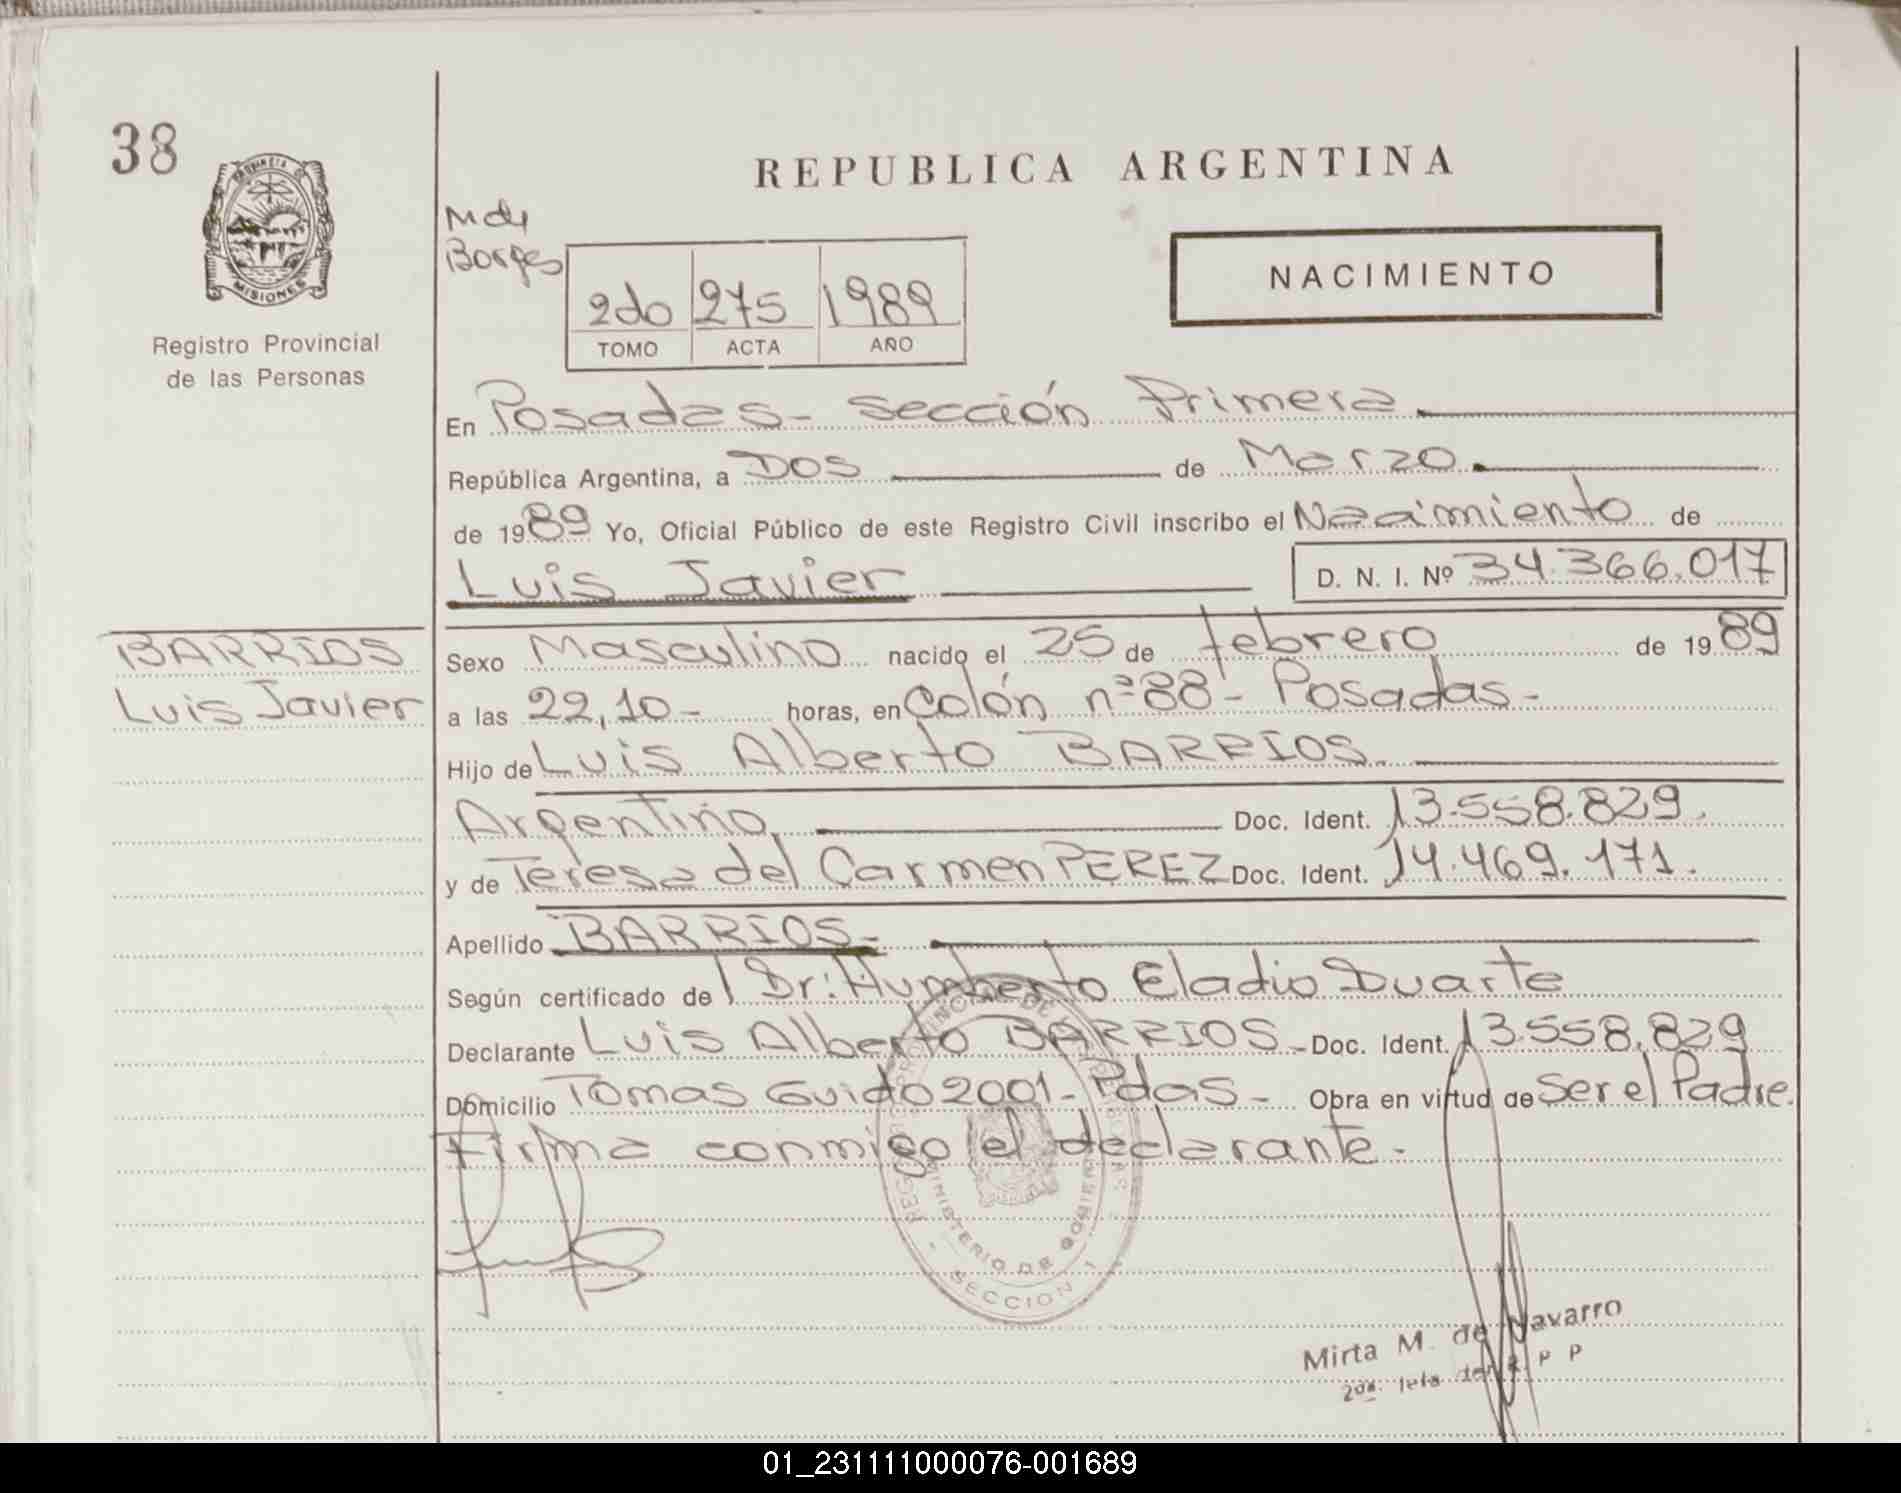 38
PROVINCIA DE
MISIONES
Registro Provincial
de las Personas
REPUBLICA ARGENTINA
NACIMIENTO
Borges
2do 275 1989
TOMO ACTA AÑO
En Posadas - Sección Primera
República Argentina, a Dos de Marzo
de 1989 Yo, Oficial Público de este Registro Civil inscribo el Nacimiento de
Luis Javier D. N. I. Nº 34.366.017
BARRIOS
Luis Javier
Sexo Masculino nacido el 25 de febrero de 1989
a las 22,10 - horas, en Colón nº 88 - Posadas -
Hijo de Luis Alberto BARRIOS
Argentino Doc. Ident. 13.558.829.
y de Teresa del Carmen PEREZ Doc. Ident. 14.469.171.
Apellido BARRIOS -
Según certificado de l Dr: Humberto Eladio Duarte
Declarante Luis Alberto BARRIOS - Doc. Ident. 13.558.829
Domicilio Tomas Guido 2001 - Pdas - Obra en virtud de Ser el Padre.
Firma conmigo el declarante -
MINISTERIO DE GOBIERNO
SECCION 1
Mirta M. de Navarro
01_231111000076-001689